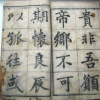 貴非吾願
帝鄉不可
期懷良辰
以孤往或